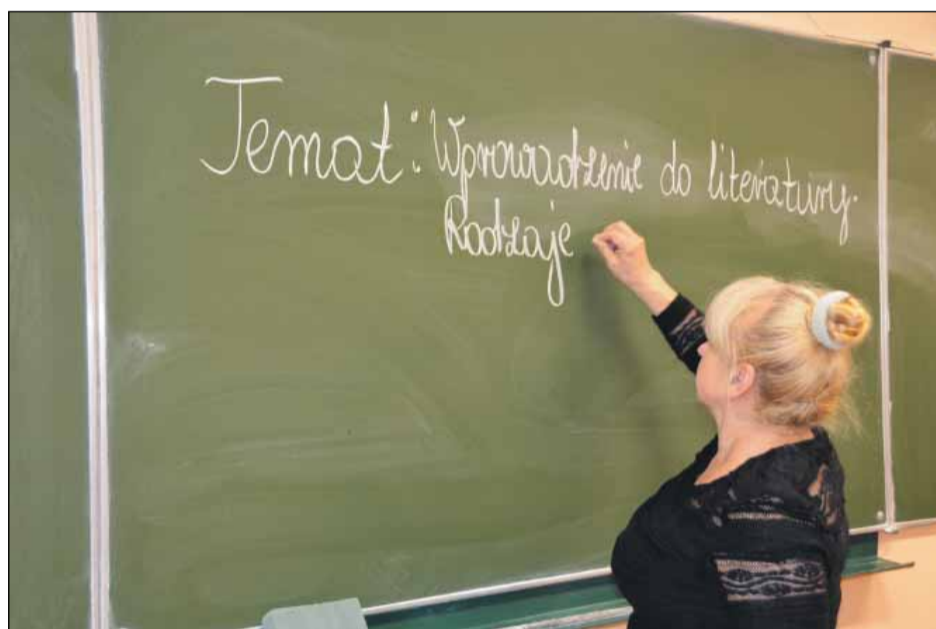 Temat: Wprowadzenie do literatury.
Rodzaje